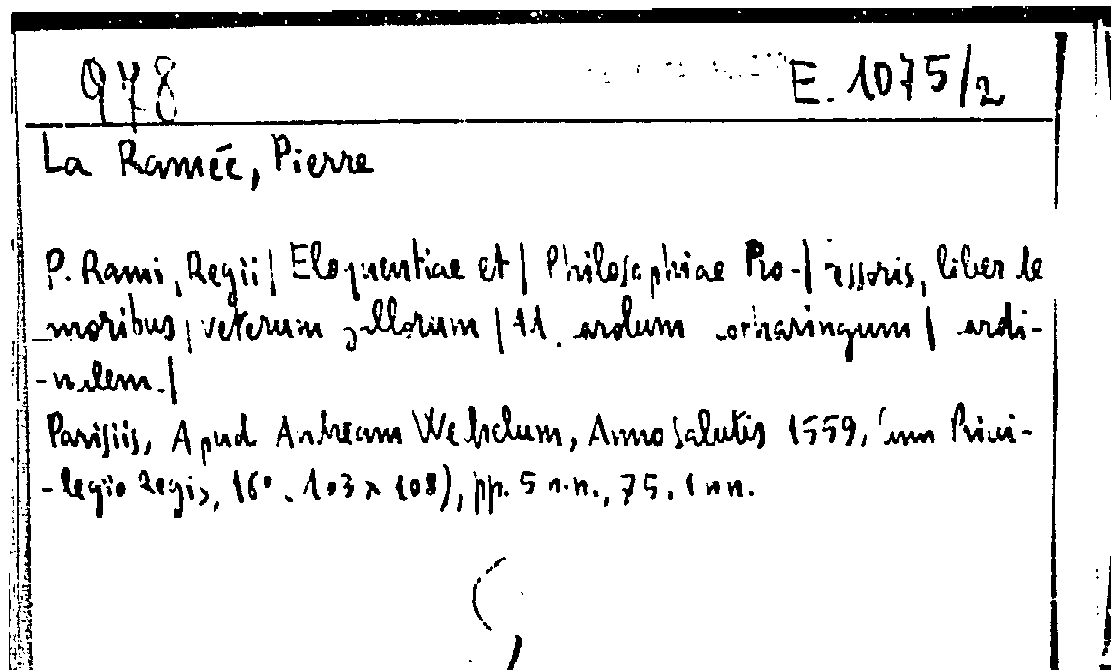 978 E. 1075/2
La Ramée, Pierre
P. Rami, Regii | Eloquentiae et | Philosophiae Pro-| essoris, liber de
moribus | veterum gallorum | Ad. arolum otharingum | ardi-
-nalem. |
Parisiis, Apud Andream Wechelum, Anno salutis 1559, Cum Privi-
-legio Regis, 16°. 103 x 108), pp. 5 n.n., 75. 1 nn.